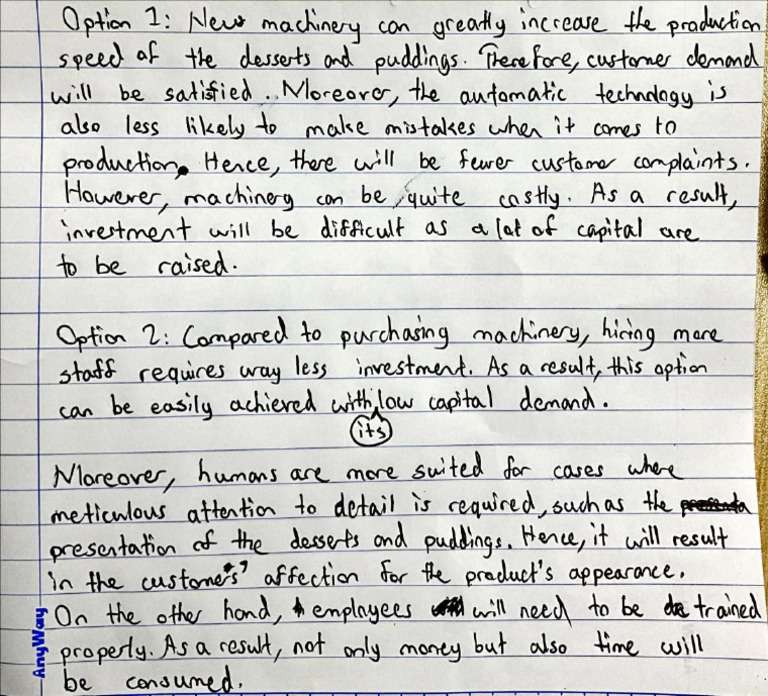 Option 1: New machinery can greatly increase the production
speed of the desserts and puddings. Therefore, customer demand
will be satisfied. Moreover, the automatic technology is
also less likely to make mistakes when it comes to
production. Hence, there will be fewer customer complaints.
However, machinery can be quite costly. As a result,
investment will be difficult as a lot of capital are
to be raised.
Option 2: Compared to purchasing machinery, hiring more
staff requires way less investment. As a result, this option
can be easily achieved with its low capital demand.
Moreover, humans are more suited for cases where
meticulous attention to detail is required, such as the
presentation of the desserts and puddings. Hence, it will result
in the customers' affection for the product's appearance.
On the other hand, employees will need to be trained
properly. As a result, not only money but also time will
be consumed.
AnyWay